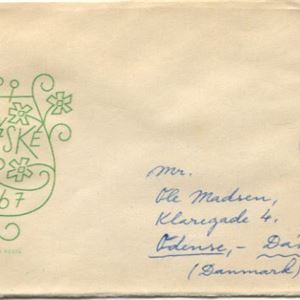 SKÉ
67
Mr.
Ole Madsen,
Klaregade 4.
Odense, - Dá
(Danmark)